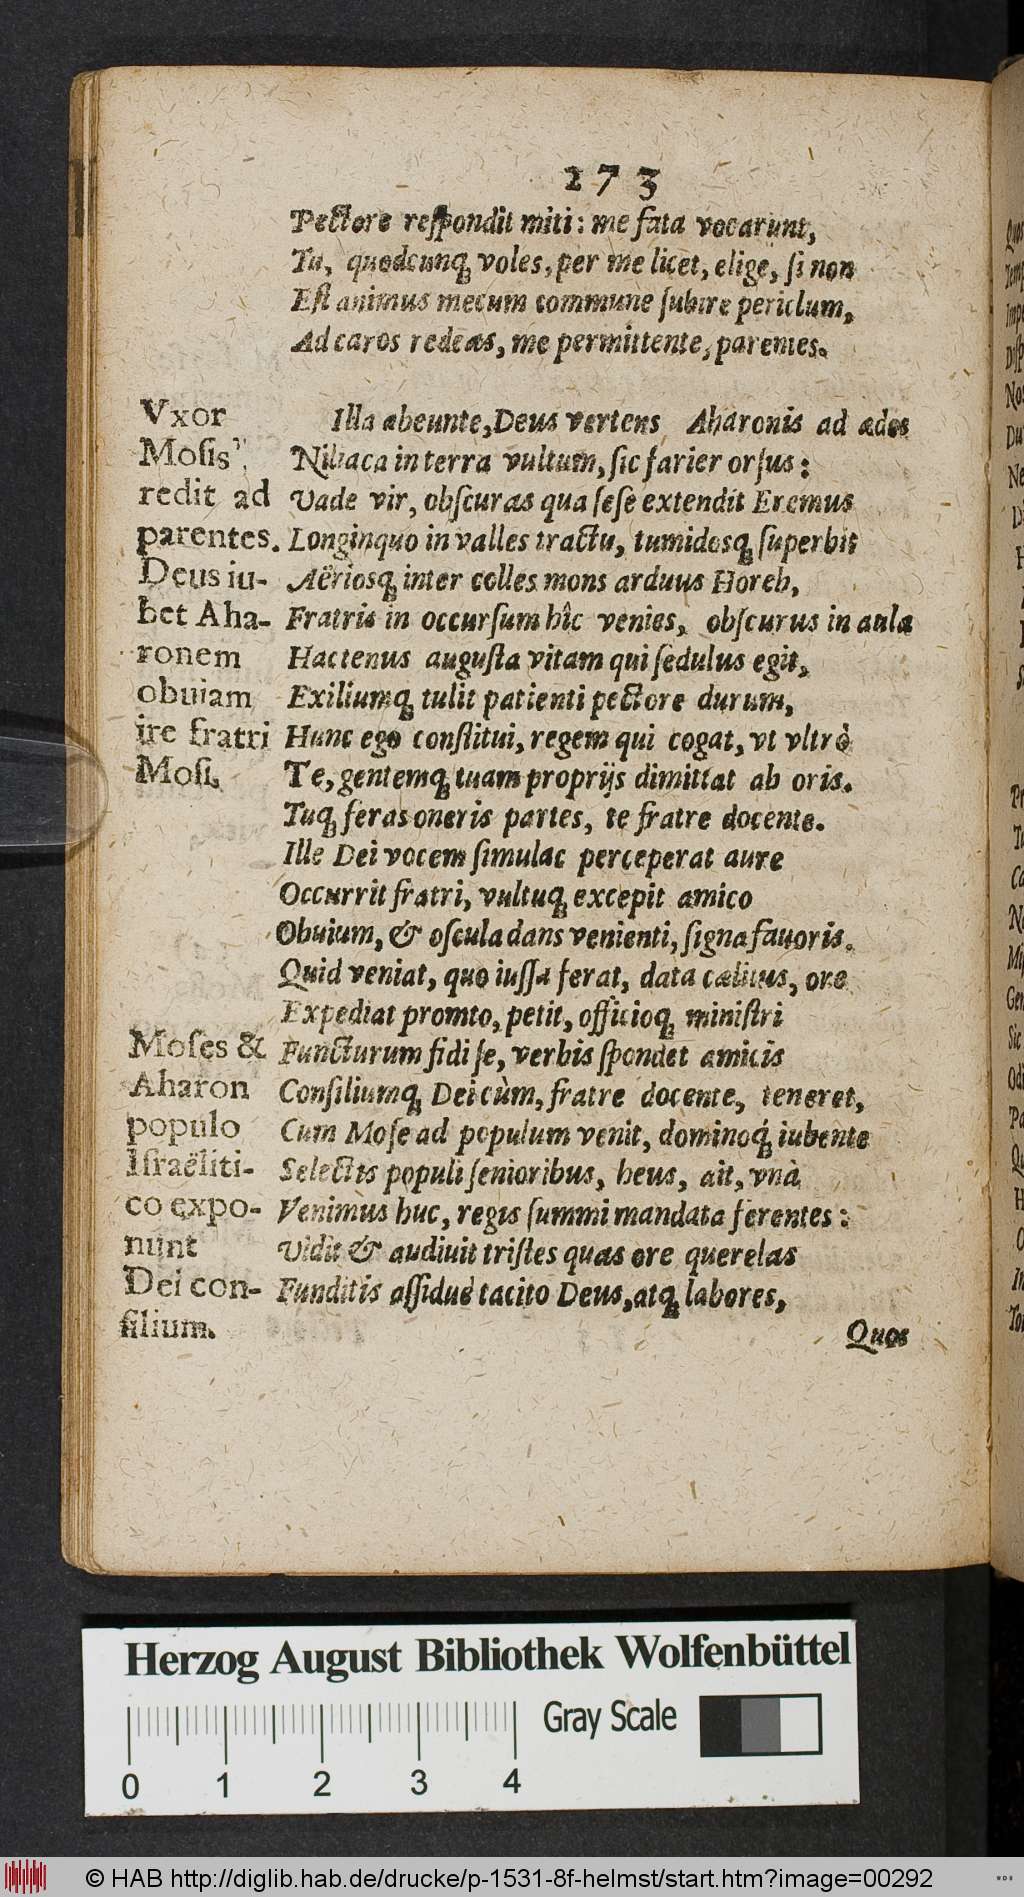 273
Pectore reſpondit miti: me fata vocarunt,
Tu, quodcunq́; voles, per me licet, elige, ſi non
Eſt animus mecum commune ſubire periclum,
Ad caros redeas, me permittente, parentes.
Vxor
Moſis
redit ad
parentes.
Deus iu-
bet Aha-
ronem
obuiam
ire fratri
Moſi.
Illa abeunte, Deus vertens Aharonis ad ædes
Niliaca in terra vultum, ſic farier orſus:
Vade vir, obſcuras qua ſeſe extendit Eremus
Longinquo in valles tractu, tumidosq; ſuperbit
Aëriosq; inter colles mons arduus Horeb,
Fratris in occurſum hîc venies, obſcurus in aula
Hactenus auguſta vitam qui ſedulus egit,
Exiliumq; tulit patienti pectore durum,
Hunc ego conſtitui, regem qui cogat, vt vltrò
Te, gentemq; tuam proprijs dimittat ab oris.
Tuq; feras oneris partes, te fratre docente.
Ille Dei vocem ſimulac perceperat aure
Occurrit fratri, vultuq; excepit amico
Obuium, & oſcula dans venienti, ſigna fauoris.
Quid veniat, quo iuſſa ferat, data cælitus, ore
Expediat promto, petit, officioq; miniſtri
Moſes &
Aharon
populo
Iſraëliti-
co expo-
nunt
Dei con-
ſilium.
Functurum fidi ſe, verbis ſpondet amicis
Conſiliumq; Dei cùm, fratre docente, teneret,
Cum Moſe ad populum venit, dominoq́; iubente
Selectis populi ſenioribus, heus, ait, vnà
Venimus huc, regis ſummi mandata ferentes:
Vidit & audiuit triſtes quas ore querelas
Funditis aſſidue tacito Deus, atq; labores,
Quos
Herzog August Bibliothek Wolfenbüttel
Gray Scale
0 1 2 3 4
© HAB http://diglib.hab.de/drucke/p-1531-8f-helmst/start.htm?image=00292